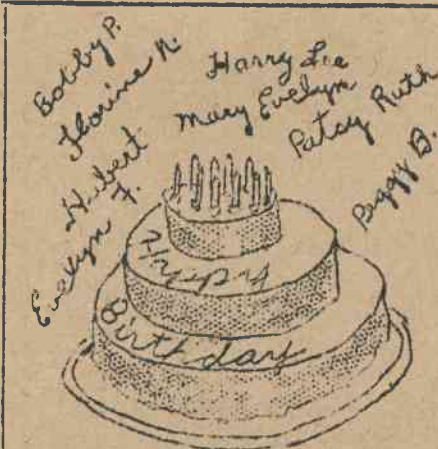 Bobby P.
Florine N.
Hubert
Evelyn F.
Harry Lee
Mary Evelyn
Patsy Ruth
Peggy B.
Happy
Birthday